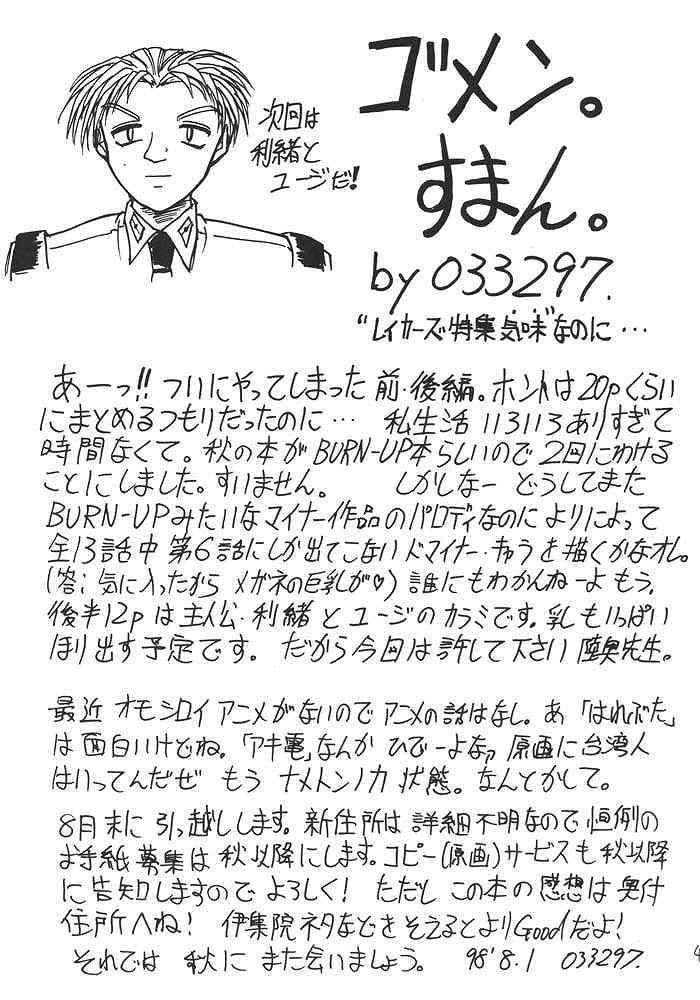 ゴメン。
すまん。
by 033297.
"レイカーズ特集気味"なのに…
次回は
利緒と
ユージだ!
あーっ!! ついにやってしまった 前・後編。ホントは20pくらい
にまとめるつもりだったのに… 私生活いろいろありすぎて
時間なくて。秋の本がBURN-UP本らしいので2回にわける
ことにしました。すいません。 しかしなー どうしてまた
BURN-UPみたいなマイナー作品のパロディなのによりによって
全13話中 第6話にしか出てこないドマイナー・キャラを描くかなオレ。
(答;気に入ったから メガネの巨乳が♡) 誰にもわかんねーよ もう。
後半12pは主人公・利緒とユージのカラミです。乳もいっぱい
ほり出す予定です。 だから今回は許して下さい 陸奥先生。
最近 オモシロイアニメがないのでアニメの話はなし。あ「はれぶた」
は面白いけどね。「アキ電」なんか ひでーよなっ 原画に台湾人
はいってんだぜ もう ナメトンノカ状態。なんとかして。
8月末に引っ越しします。新住所は詳細不明なので恒例の
お手紙募集は秋以降にします。コピー(原画)サービスも秋以降
に告知しますのでよろしく! ただし この本の感想は奥付
住所へね! 伊集院ネタなどをそえるとよりGoodだよ!
それでは 秋に また会いましょう。 98'8.1 033297.
4